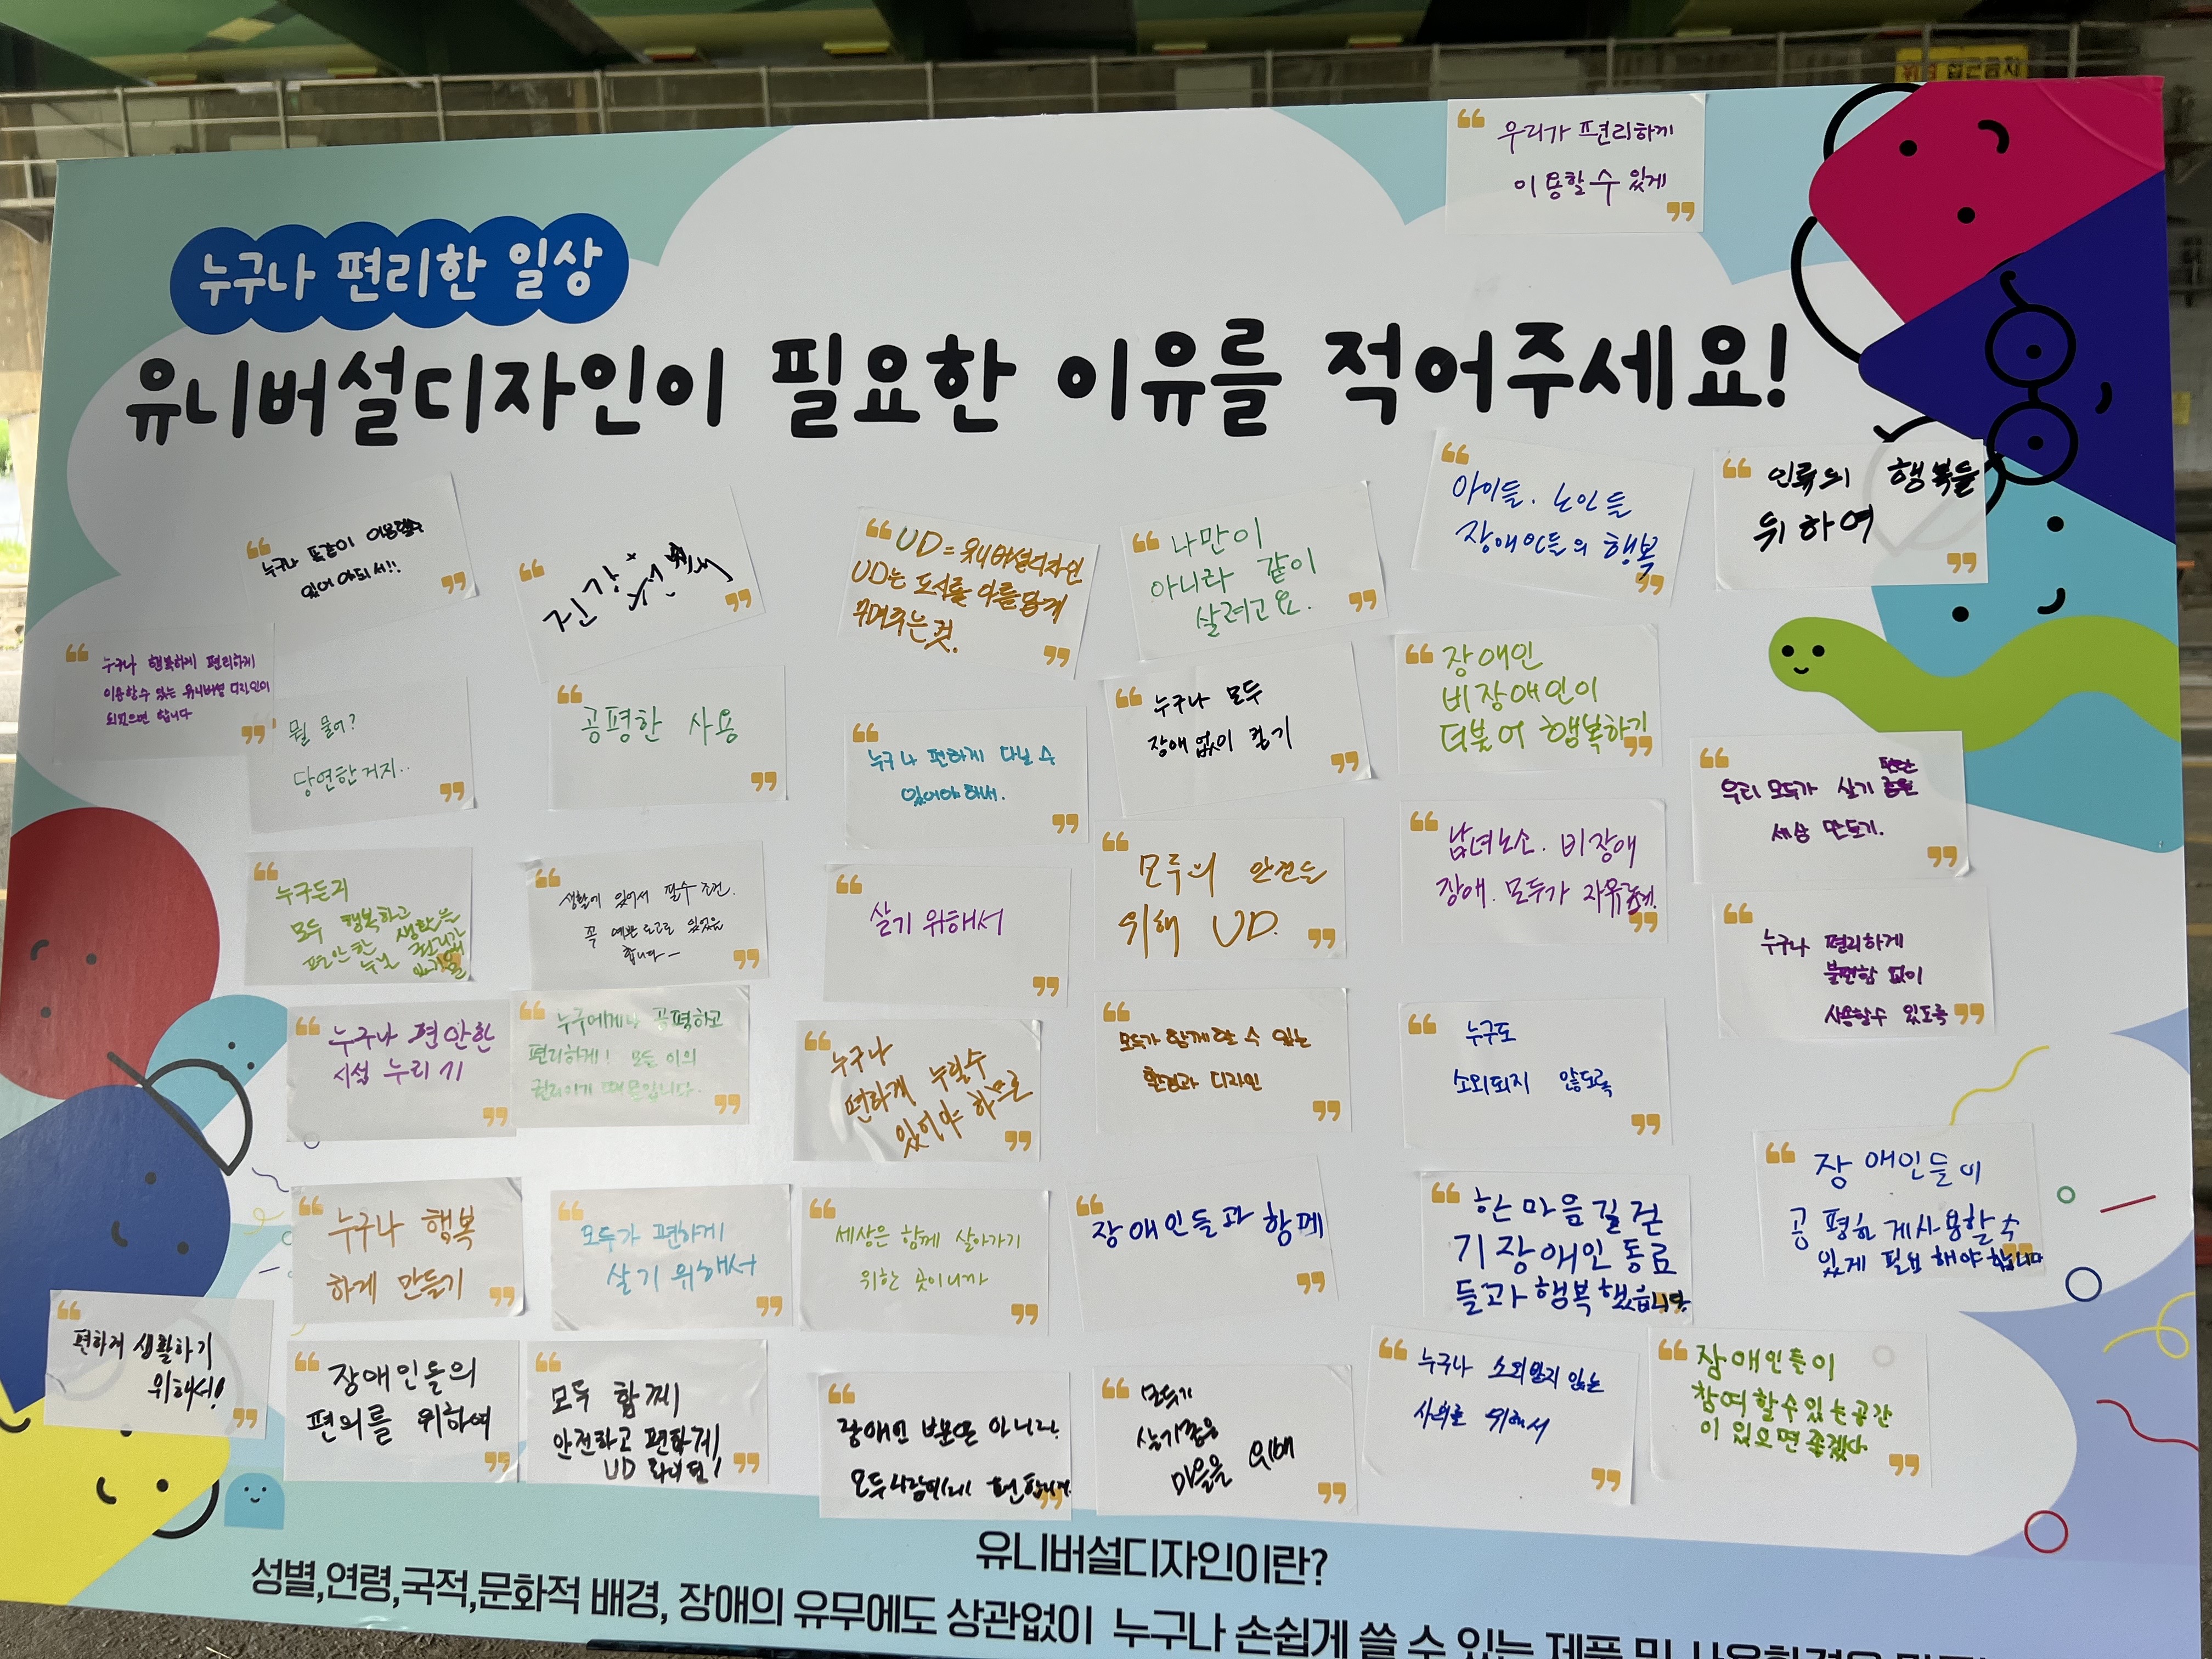 누구나 편리한 일상
유니버설디자인이 필요한 이유를 적어주세요!
우리가 편리하게
이용할 수 있게
누구나 똑같이 이용할수
있어야되서!!
UD=유니버설디자인
UD는 도시를 아름답게
꾸며주는 것.
나만이
아니라 같이
살려고요.
아이들. 노인들
장애인들의 행복
인류의 행복들
위하여
누구나 행복하게 편리하게
이용할수 있는 유니버설 디자인이
되었으면 합니다
뭘 물어?
당연한거지..
공평한 사용
누구나 편하게 다닐 수
있어야 해서.
누구나 모두
장애 없이 살기
장애인
비장애인이
더불어 행복하기
우리 모두가 살기 편한
세상 만들기.
누구든지
모두 행복하고
편안한 생활을
누릴 권리가
생활에 있어서 필수 조건.
꼭 예쁜 로고로 있었음
합니다~
살기 위해서
모두의 안전을
위해 UD.
남녀노소. 비장애
장애. 모두가 자유롭게.
누구나 편리하게
불편함 없이
사용할수 있도록
누구나 편안한
시설 누리기
누구에게나 공평하고
편리하게! 모든 이의
권리이기 때문입니다.
누구나
편하게 누릴수
있어야 하므로
모두가 함께 할 수 있는
환경과 디자인
누구도
소외되지 않도록
누구나 행복
하게 만들기
모두가 편하게
살기 위해서
세상은 함께 살아가기
위한 곳이니까
장애인들과 함께
한마음길걷
기장애인동료
들과행복했습니다.
장애인들이
공평하게사용할수
있게 필요해야합니다
편하게 생활하기
위해서!
장애인들의
편의를 위하여
모두 함께
안전하고 편하게
UD 화이팅!
장애인 분만 아니라.
모두
살기좋은
마을을 위해
누구나 소외되지 않는
사회를 위해서
장애인들이
참여할수있는공간
이 있으면 좋겠다
유니버설디자인이란?
성별,연령,국적,문화적 배경, 장애의 유무에도 상관없이 누구나 손쉽게 쓸 수 있는 제품 및 사용환경을